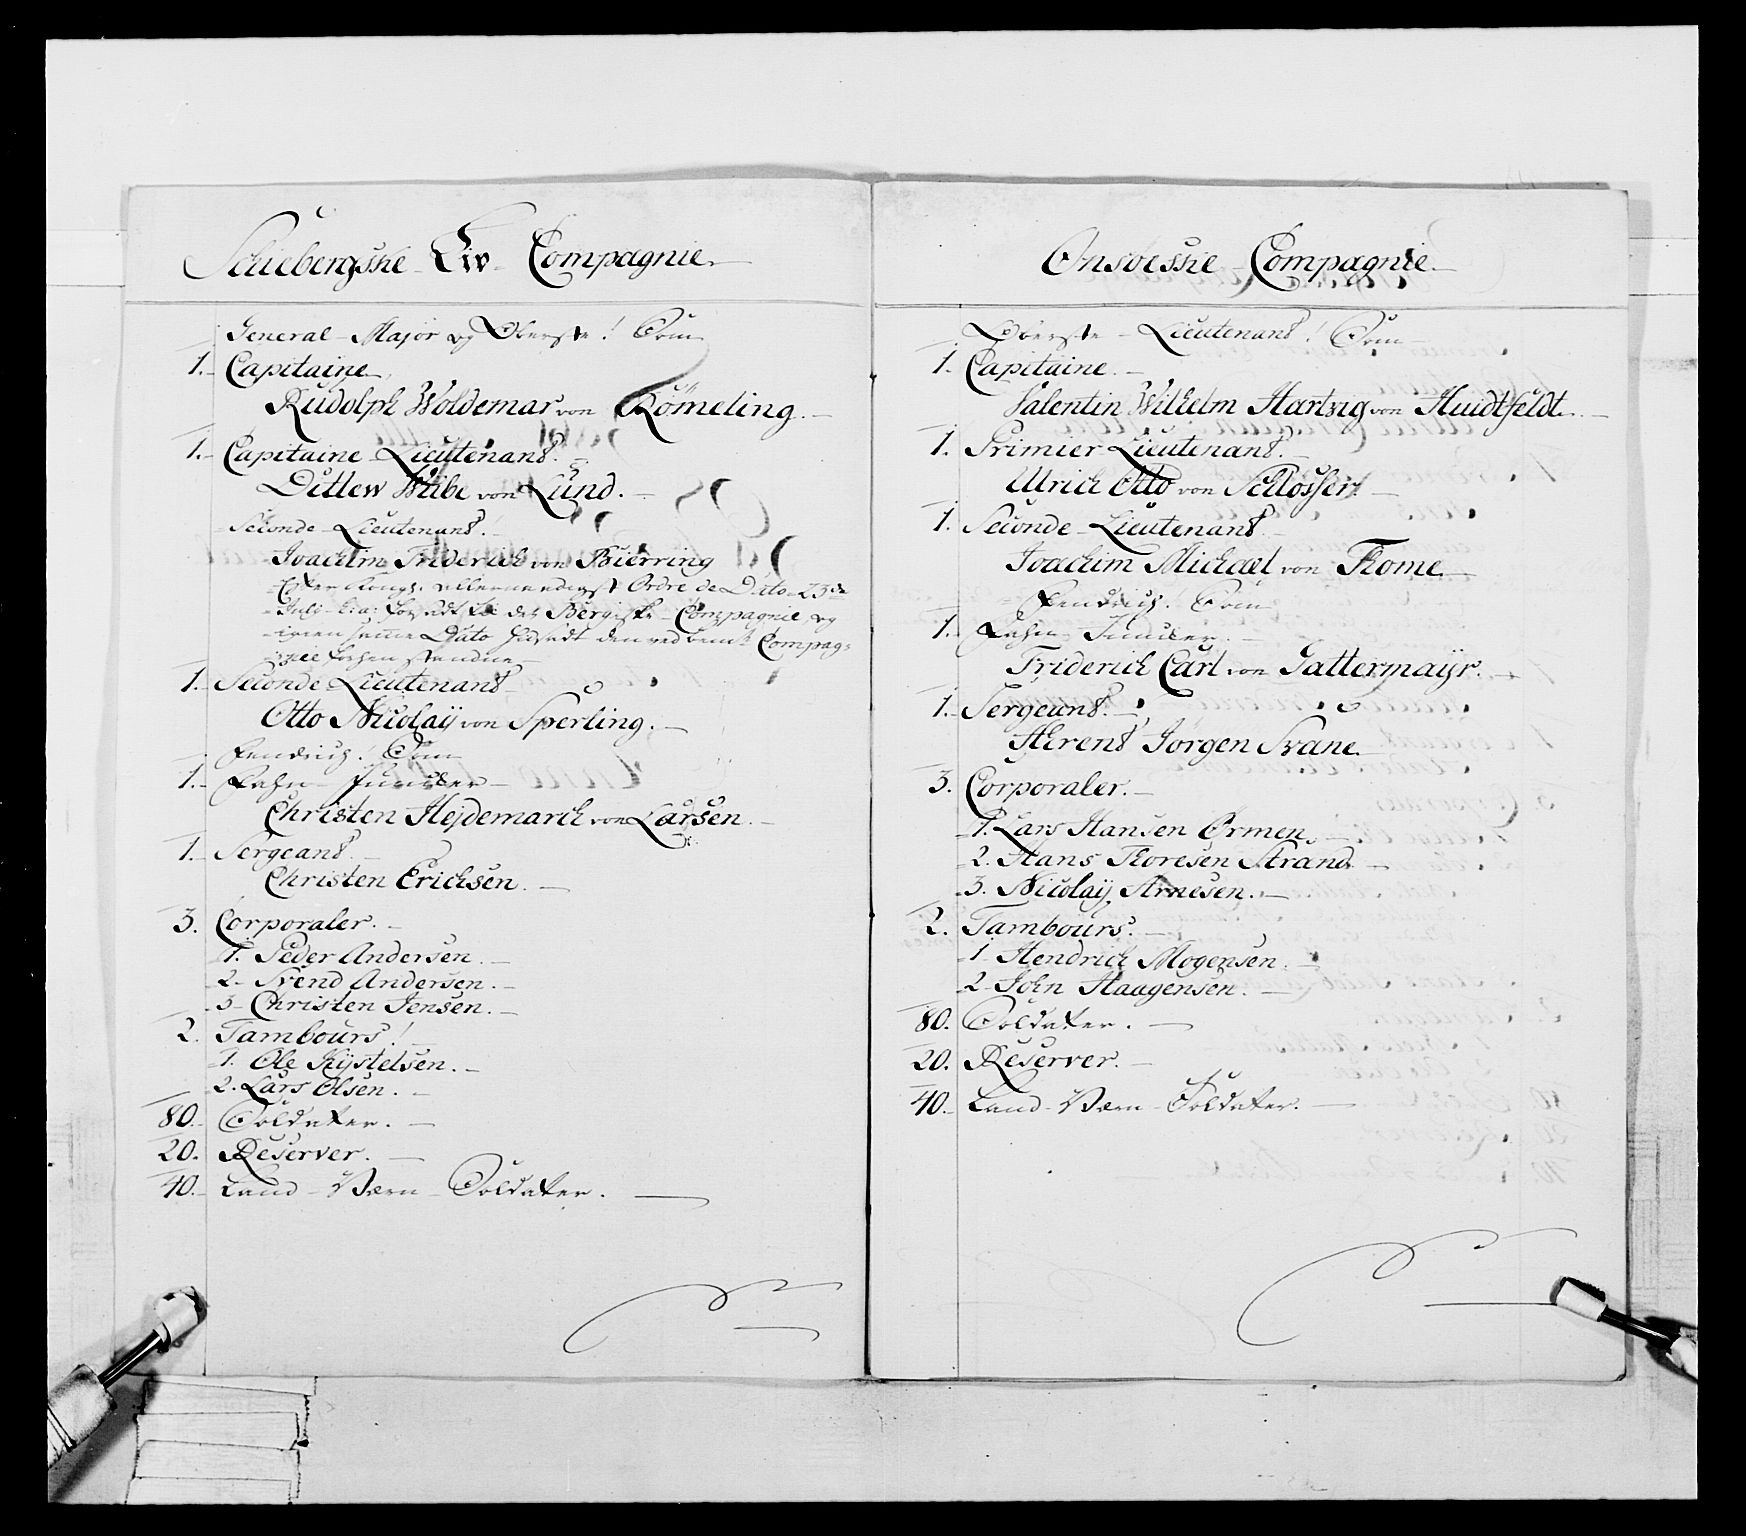 Schiebergske Liv Compagnie.
General-Major og Oberste! Som
1. Capitaine
Rudolph Woldemar von Römeling.
1. Capitaine Lieutenant.
Ditlew Wibe von Lund.
Seconde Lieutenant.
Joachim Friderich von Bierring
Efter Kongl. allernaadigst Ordre de Dato 23de
Juli h: a: forsadt til det Bergiske Compagnie, og
igien samme Dato hidsadt den ved bemte Compag=
nie forhen staaende
1. Seconde Lieutenant
Otto Nicolaÿ von Sperling.
Fendrich! Som
1. Fahn-Juncker
Christen Hejdemarch von Larsen.
1. Sergeant.
Christen Erichsen.
3. Corporaler.
1. Peder Andersen.
2. Svend Andersen.
3. Christen Jensen.
2. Tambours!
1. Ole Kÿstelsen.
2. Lars Olsen.
80. Soldater.
20. Reserver.
40. Land-Værn-Soldater.
Onsøeske Compagnie.
Oberste-Lieutenant! Som
1. Capitaine.
Valentin Wilhelm Hartvig von Huidtfeldt.
1. Primier Lieutenant.
Ulrich Otto von Schlosser
1. Seconde-Lieutenant.
Joachim Michael von Thome.
Fendrich! Som
1. Fahn-Juncker.
Friderich Carl von Gattermaÿr.
1. Sergeant.
Ahrent Jørgen Svane.
3. Corporaler.
1. Lars Hansen Ørmen.
2. Hans Thoresen Strand.
3. Nicolaÿ Arnesen.
2. Tambours.
1. Hendrich Mogensen.
2. John Haagensen.
80. Soldater.
20. Reserver.
40. Land-Værn-Soldater.